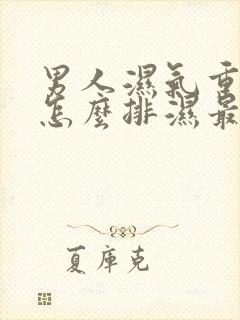 男人濕氣重
怎麼排濕最
夏庫克